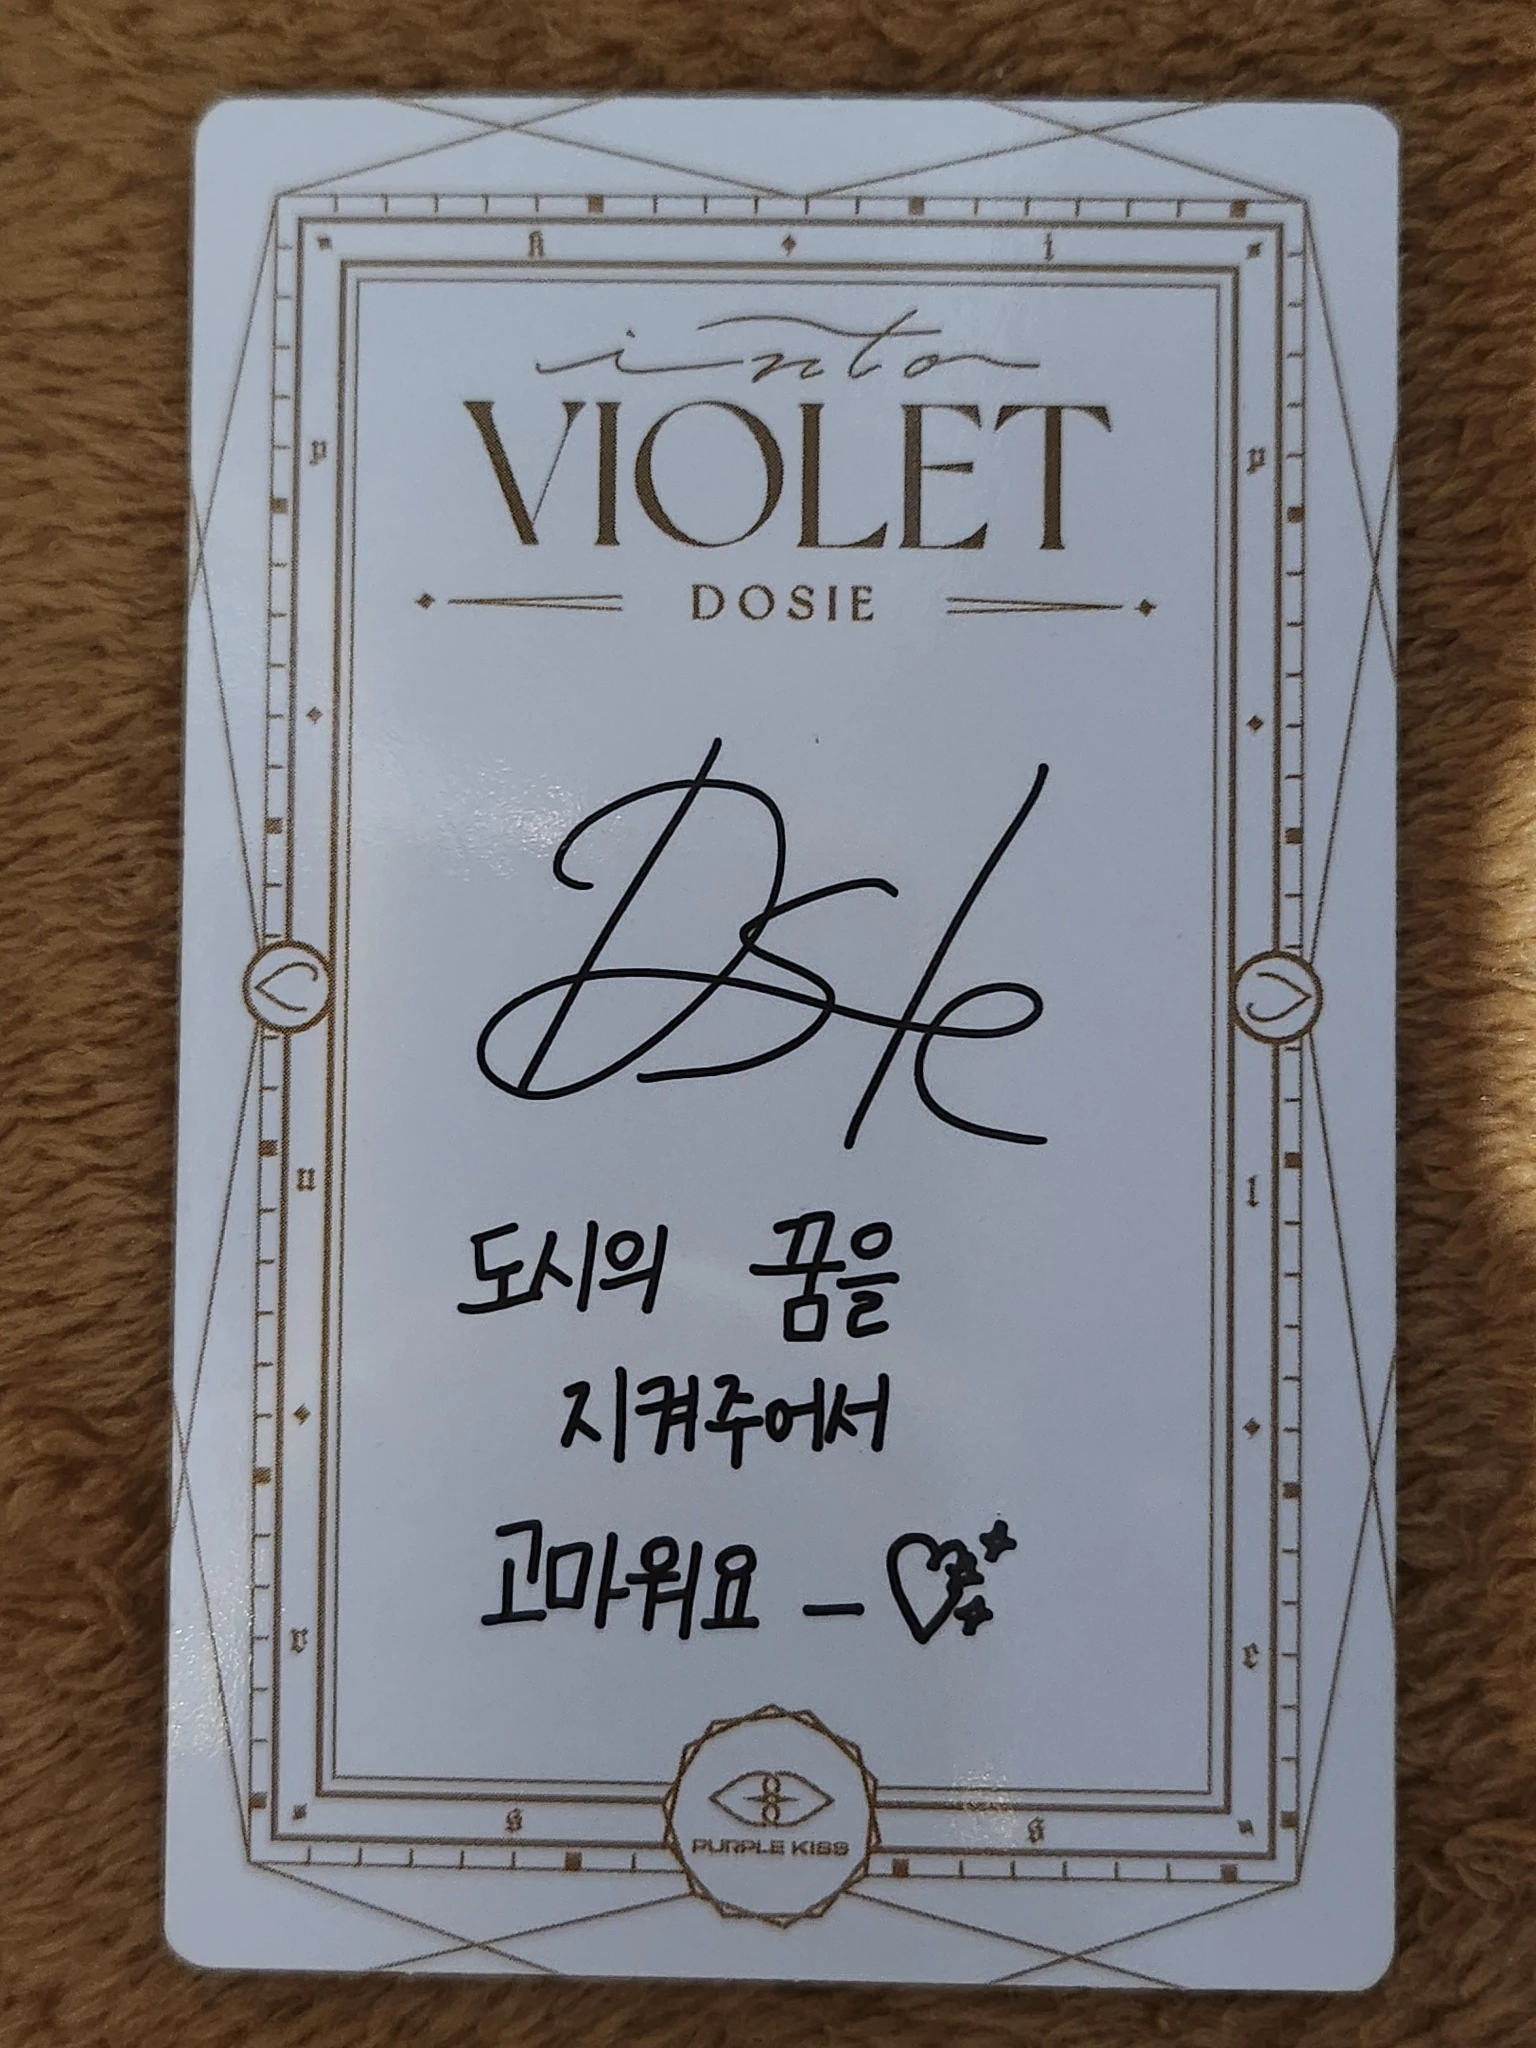 into
VIOLET
DOSIE
Dsie
도시의 꿈을
지켜주어서
고마워요 _ ♡
PURPLE KISS